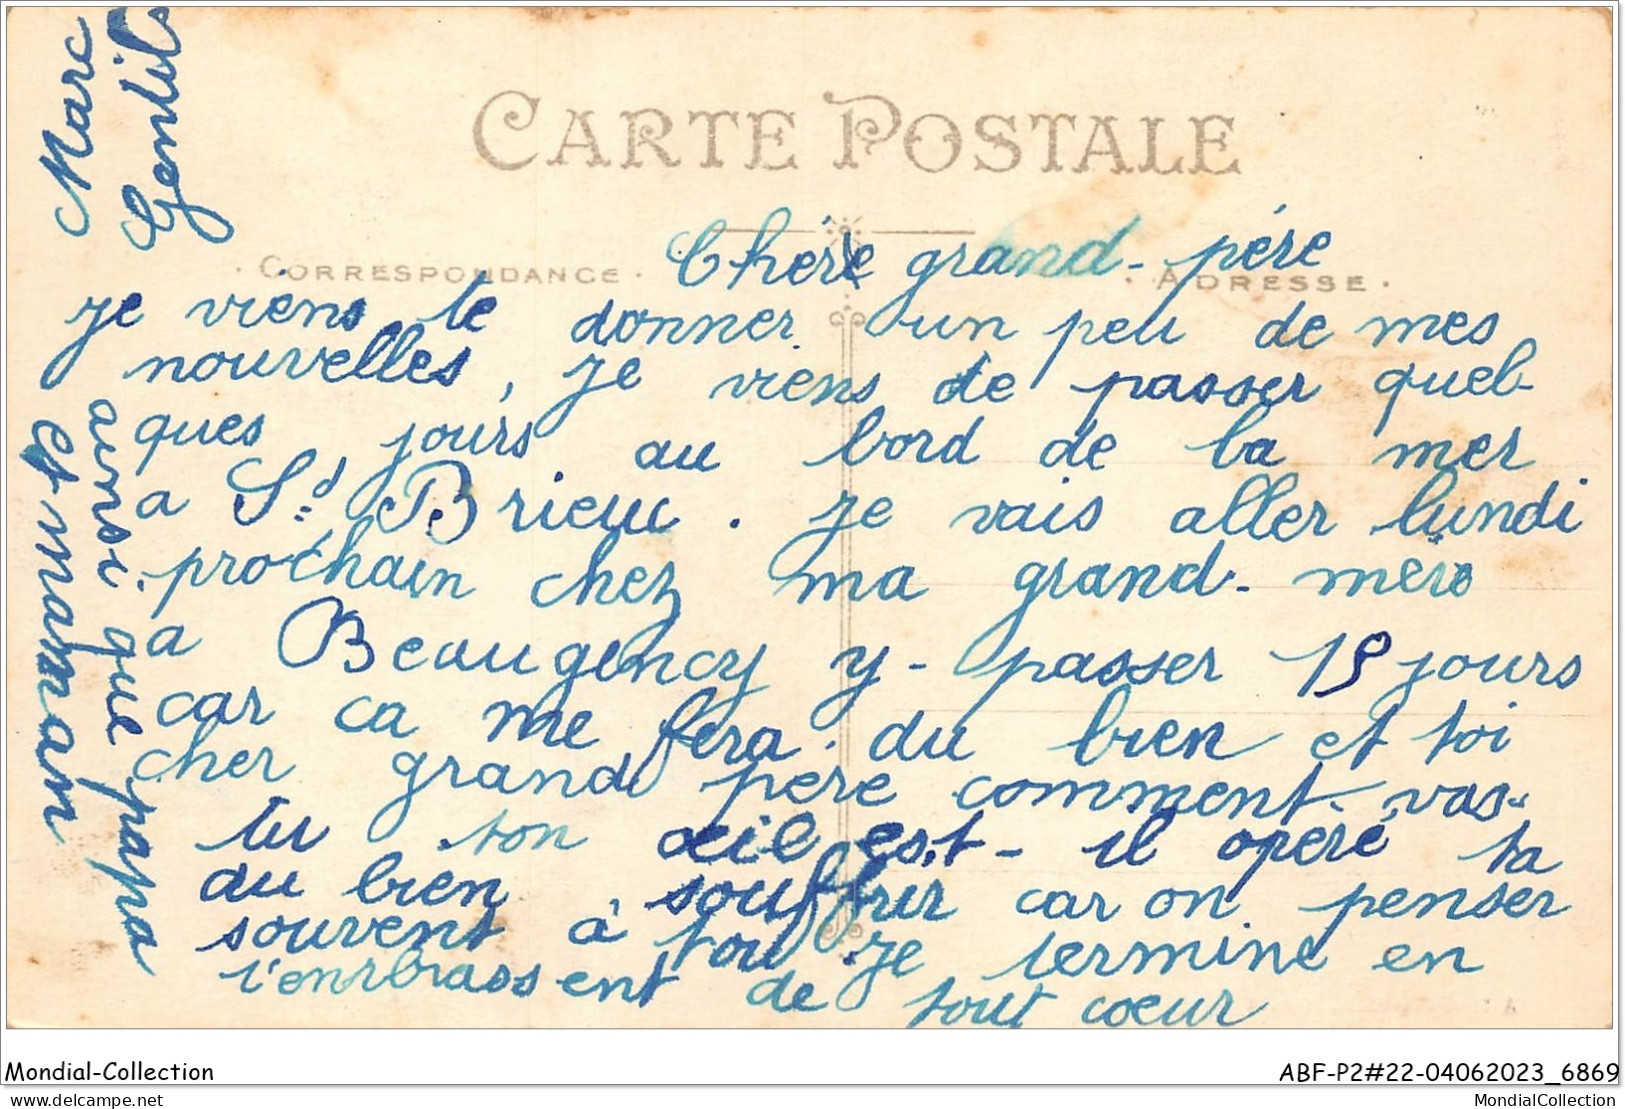 CARTE POSTALE
CORRESPONDANCE
ADRESSE
Chére grand-pére
je viens te donner un peu de mes
nouvelles, je viens de passer quel-
ques jours au bord de la mer
a St Brieuc. je vais aller lundi
prochain chez ma grand-mère
a Beaugency y-passer 15 jours
car ca me fera du bien et toi
cher grand pere comment-vas-
tu ton œil est-il opéré ta
du bien souffrir car on penser
souvent à toi. Je termine en
t'embrassent de tout coeur
ainsi que papa
et maman
Marc
Gentils
Mondial-Collection
ABF-P2#22-04062023_6869
delcampe.net
MondialCollection